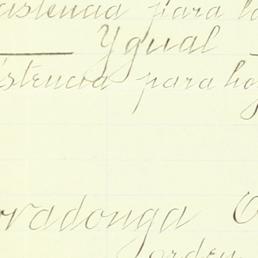 istencia para la
Ygual
istencia para hoy
vadonga
orden